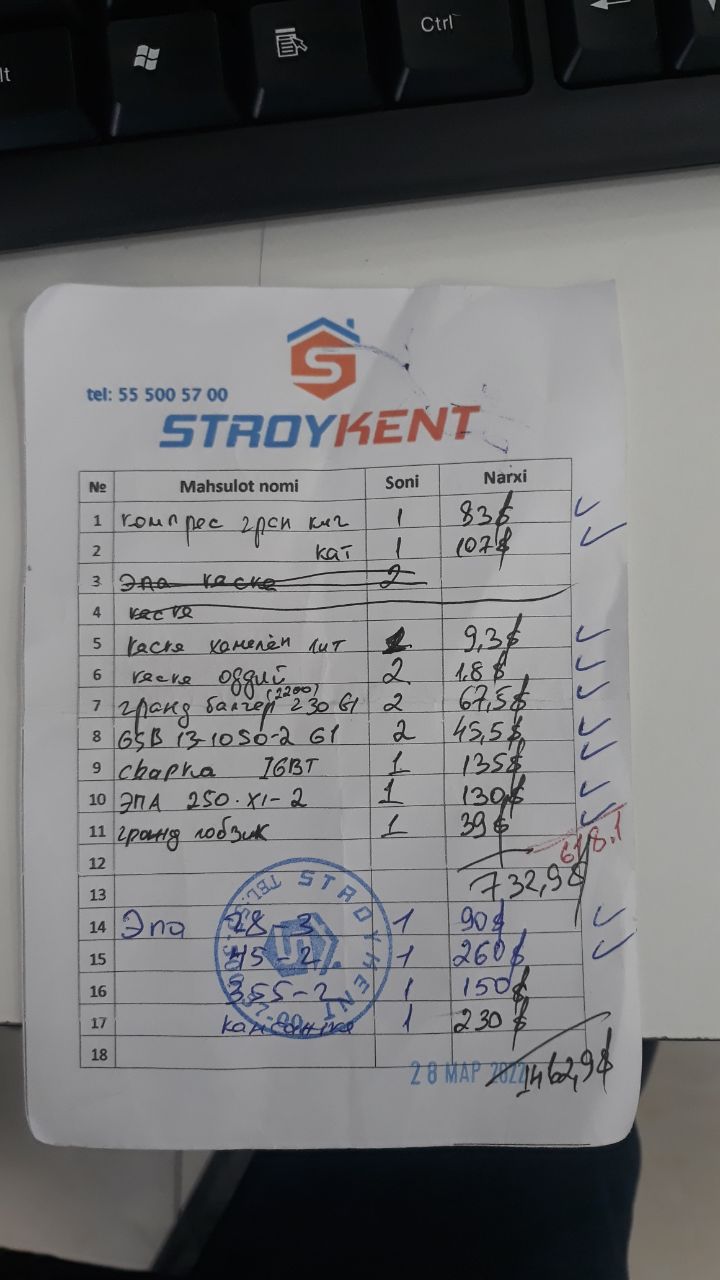 lt
Ctrl
S
tel: 55 500 57 00
STROYKENT
№ Mahsulot nomi Soni Narxi
1 компрес гран кмг 1 83$
2 кат 1 107$
3 эпа каска 2
4 каска
5 каска хамелён лит 9,3$
6 каска оддий 2 1.8$
7 гранд балгер (2200) 230 G1 2 67,5$
8 GSB 13-1050-2 G1 2 45,5$
9 сварка IGBT 1 135$
10 ЭПА 250.XI-2 1 130$
11 гранд лобзик 1 39$
618.1
12
13 732,9$
14 Эпа 28-3 1 90$
15 45-2 1 260$
16 355-2 1 150$
17 1 230$
18
28 МАР 2022
1462,9$
STROYKENT
TEL: